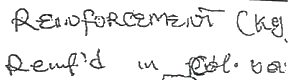 REINFORCEMENT (Kg)
Reinf'd in Col.